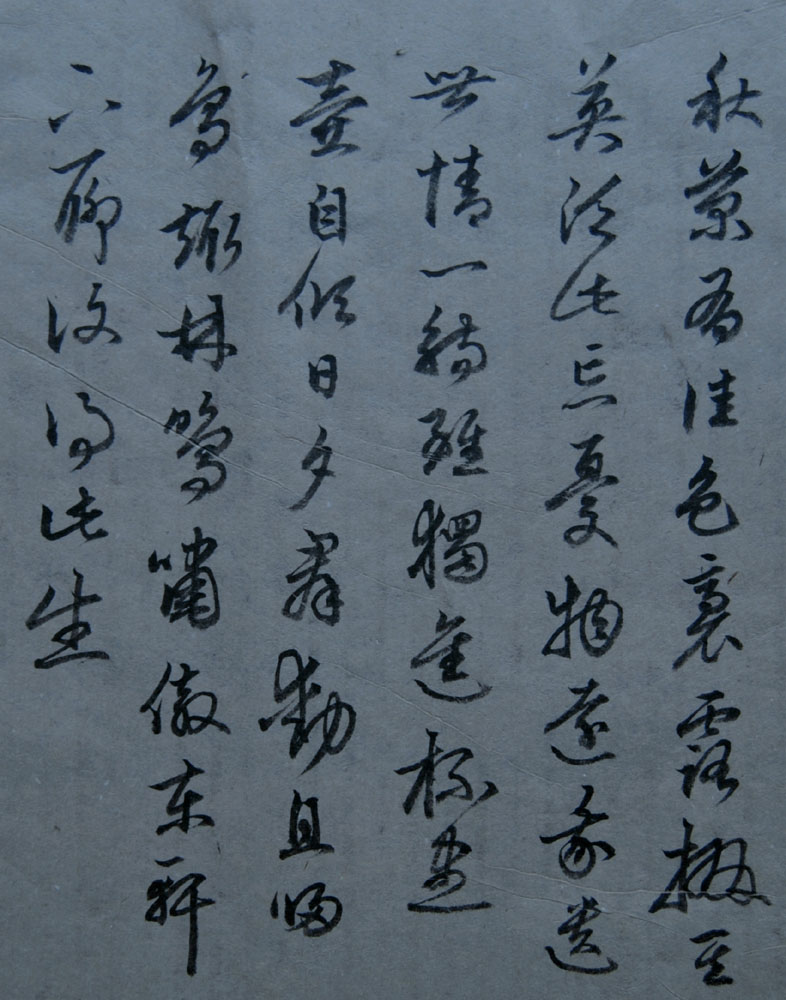 秋菊有佳色裛露掇其
英泛此忘憂物遠我遺
世情一觴雖獨進杯盡
壺自傾日夕羣動息歸
鳥趨林鳴嘯傲東軒
下聊復得此生